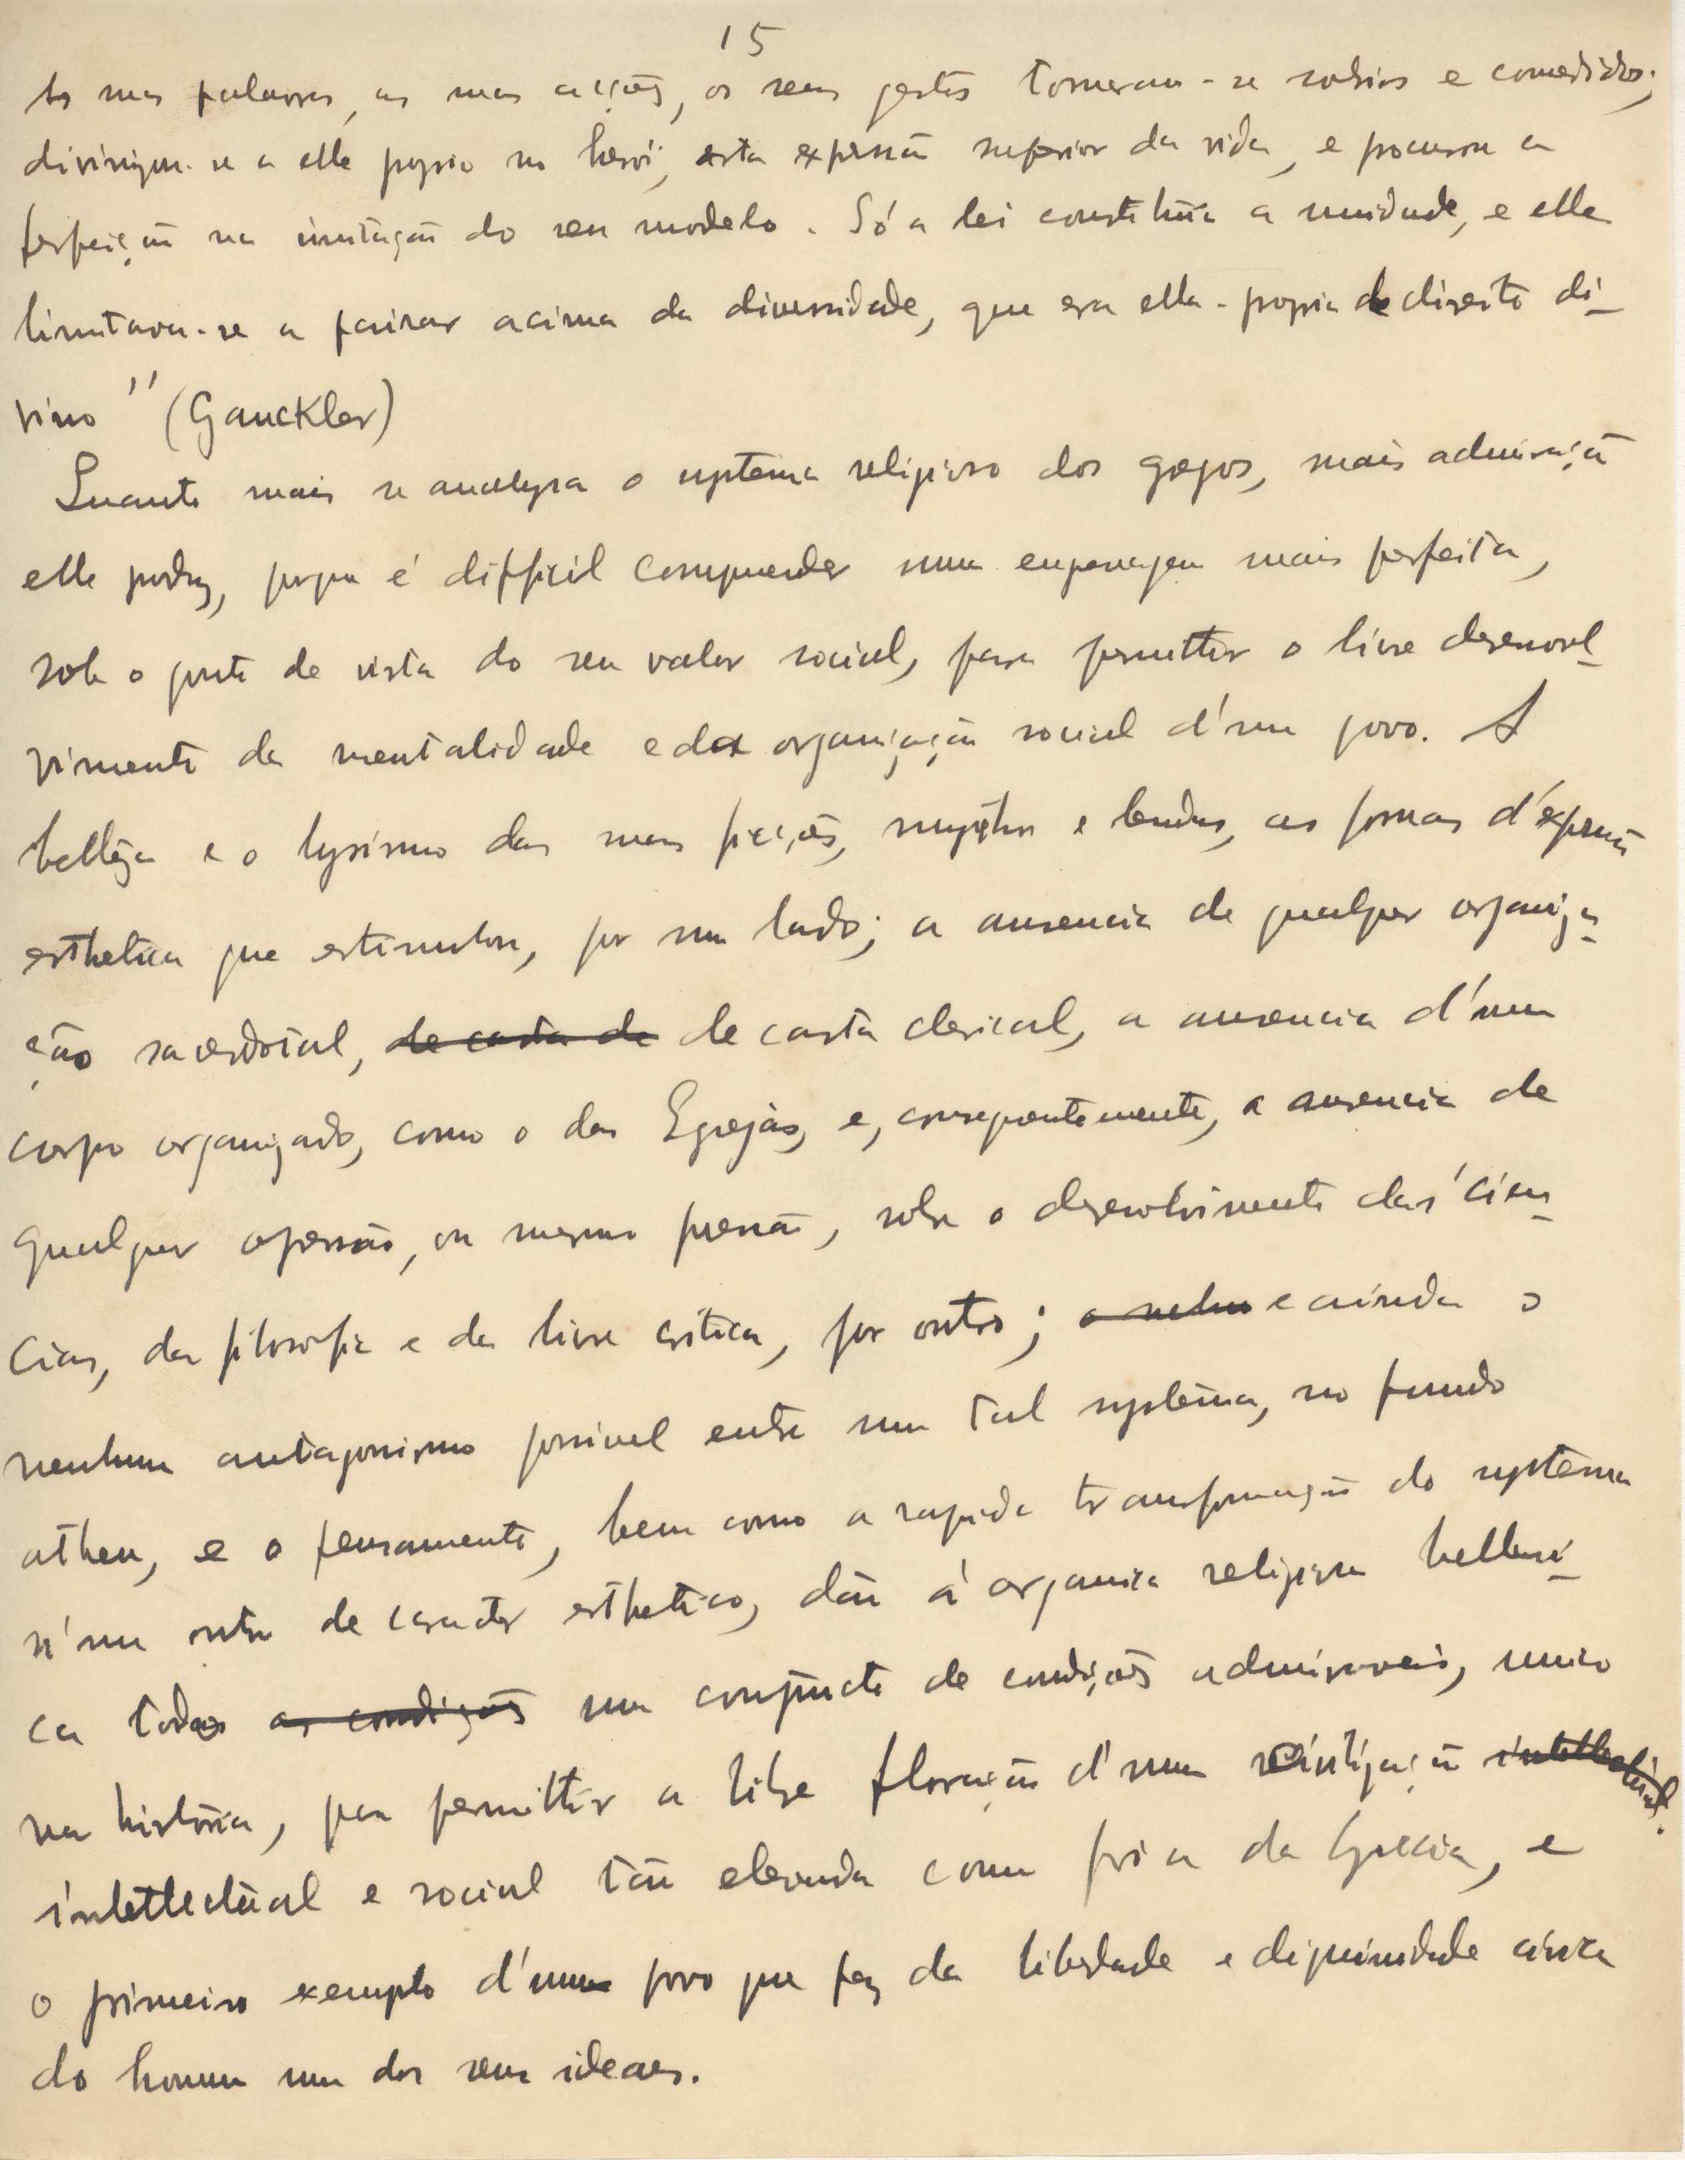 15
to nas palavras, as suas acções, os seus gestos tornaram-se sobrios e comedidos;
divinizou-se a elle proprio no heroi, esta expressão superior da vida, e procurou a
perfeição na imitação do seu modelo. Só a lei constituia a unidade, e ella
limitava-se a pairar acima da diversidade, que era ella-propria de direito di-
vino" (Gauckler)
Quanto mais se analysa o systema religioso dos gregos, mais admiração
elle produz, porque é difficil comprehender uma engrenagem mais perfeita,
sob o ponto de vista do seu valor social, para permittir o livre desenvol-
vimento da mentalidade e da organização social d'um povo. A
belleza e o lyrismo das suas ficções, mythos e lendas, as formas d'expressão
esthetica que estimulou, por um lado; a ausencia de qualquer organiza-
ção sacerdotal, de casta de de casta clerical, a ausencia d'um
corpo organizado, como o das Egrejas, e, consequentemente, a ausencia de
qualquer opressão, ou mesmo pressão, sobre o desenvolvimento das scien-
cias, da filosofia e da livre critica, por outro; e ainda o
nenhum antagonismo possivel entre um tal systema, no fundo
atheu, e o pensamento, bem como a rapida transformação do systema
n'um outro de caracter esthetico, dão á organica religiosa helleni-
ca todas as condições um conjuncto de condições admiraveis, unico
na historia, para permittir a livre floração d'uma civilização intellectual
intellectual e social tão elevada como foi a da Grecia, e
o primeiro exemplo d'um povo que fez da liberdade e dignidade civica
do homem um dos seus ideaes.